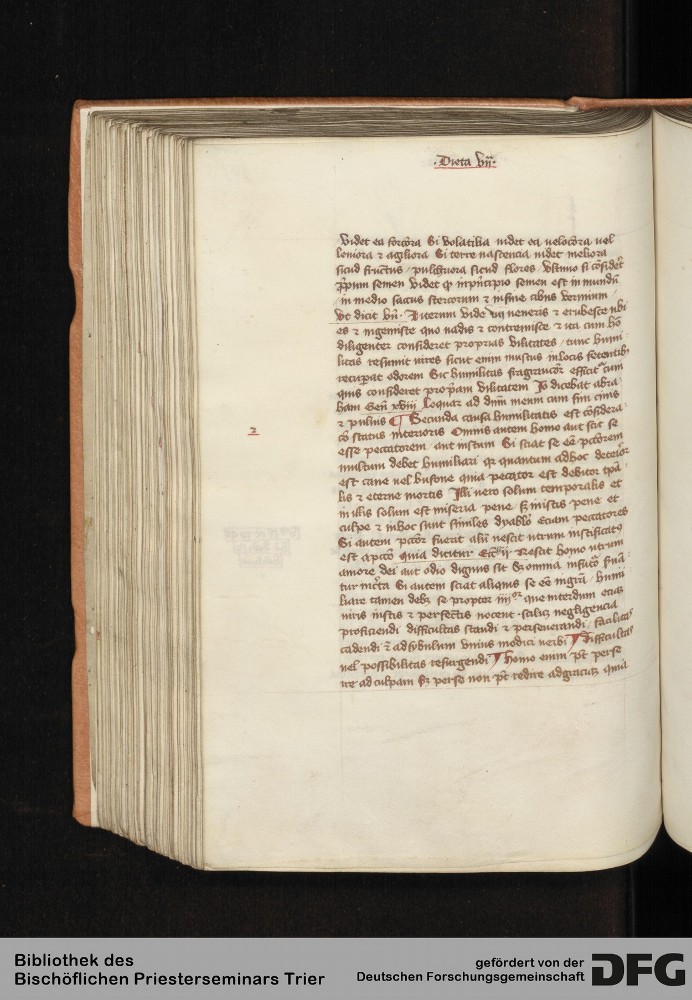 ·Dieta vij·
videt ea forc̄ora Si volatilia videt ea veloc̄ora vel
leviora ⁊ agiliora Si terre nascencia videt meliora
sicud fructus / pulcriora sicud flores / vltimo si c̄sideret
p̄p̄um semen videt q̄ inp̄ncipio semen est in mundū
in medio saccus stercorum ⁊ in fine cibus vermium /
vt dicit bñ · Iterum vide vn̄ veneris ⁊ erubesce vbi
es ⁊ ingemisce quo vadis ⁊ contremisce ⁊ ita cum hō
diligenter consideret proprias vilitates / tunc humi
litas resumit vires sicut enim muscus in locis fetentib
recup̄at odorem Sic humilitas fragrancior efficit᷑ cum
quis consideret propriam vilitatem Io dicebat abra
ham Geñ xviij Loquar ad dñm meum cum sim cinis
⁊ pulvis ¶ Secunda causa humilitatis est c̄sidera
2
cō status interioris Omnis autem homo aut scit se
esse peccatorem / aut iustum Si sciat se eē pctōrem
multum debet humiliari qr quantum ad hoc deterior
est cane vel bufone quia peccator est debitor tpa
lis ⁊ eterne mortis Illi vero solum temporalis et
in illis solum est miseria pene sʒ in istis pene et
culpe ⁊ in hoc sunt similes dyabolo Eciam peccatores
Si autem pctōr fuerit aliū nescit utrum iustificatꝰ
est a pctō quia dicitur Ecc ij Nescit homo utrum
amore dei aut odio dignus sit S omnia in futū suā
tur inc̄ta Si autem sciat aliquis se eē in grā / humi
liare tamen debʒ se propter iiijor que interdum eciam
viris iustis ⁊ perfectis nocent · scilicʒ negligencia
proficiendi difficultas standi ⁊ perseverandi / facilitas
cadendi ⁊ ad sybulum vnius modici verbi ¶ Difficultas
vel possibilitas resurgendi ¶ homo enim pt̄ per se
ire ad culpam sʒ per se non pt̄ redire ad graciaʒ quia
Bibliothek des
Bischöflichen Priesterseminars Trier
gefördert von der
Deutschen Forschungsgemeinschaft
DFG